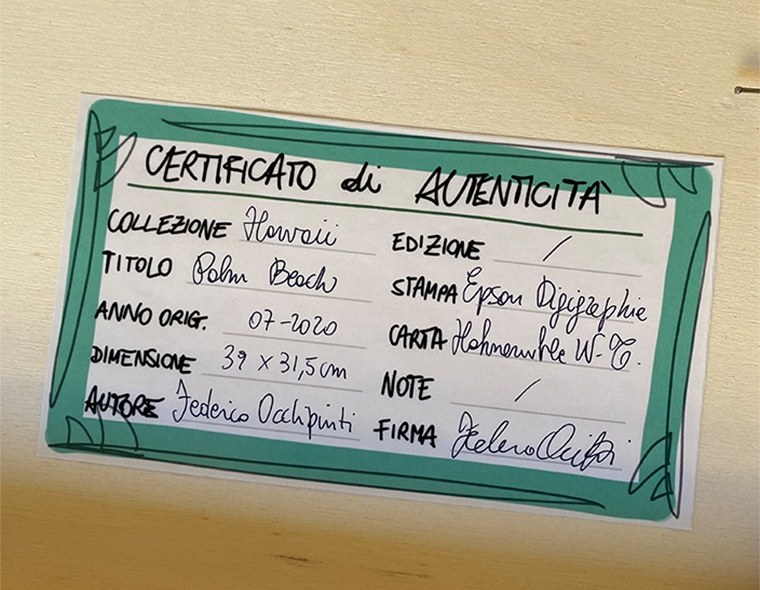 CERTIFICATO di AUTENTICITÀ
COLLEZIONE Hawaii
TITOLO Palm Beach
ANNO ORIG. 07-2020
DIMENSIONE 39 x 31,5 cm
AUTORE Federico Occhipinti
EDIZIONE /
STAMPA Epson Digigraphie
CARTA Hahnemuhle W-T.
NOTE /
FIRMA